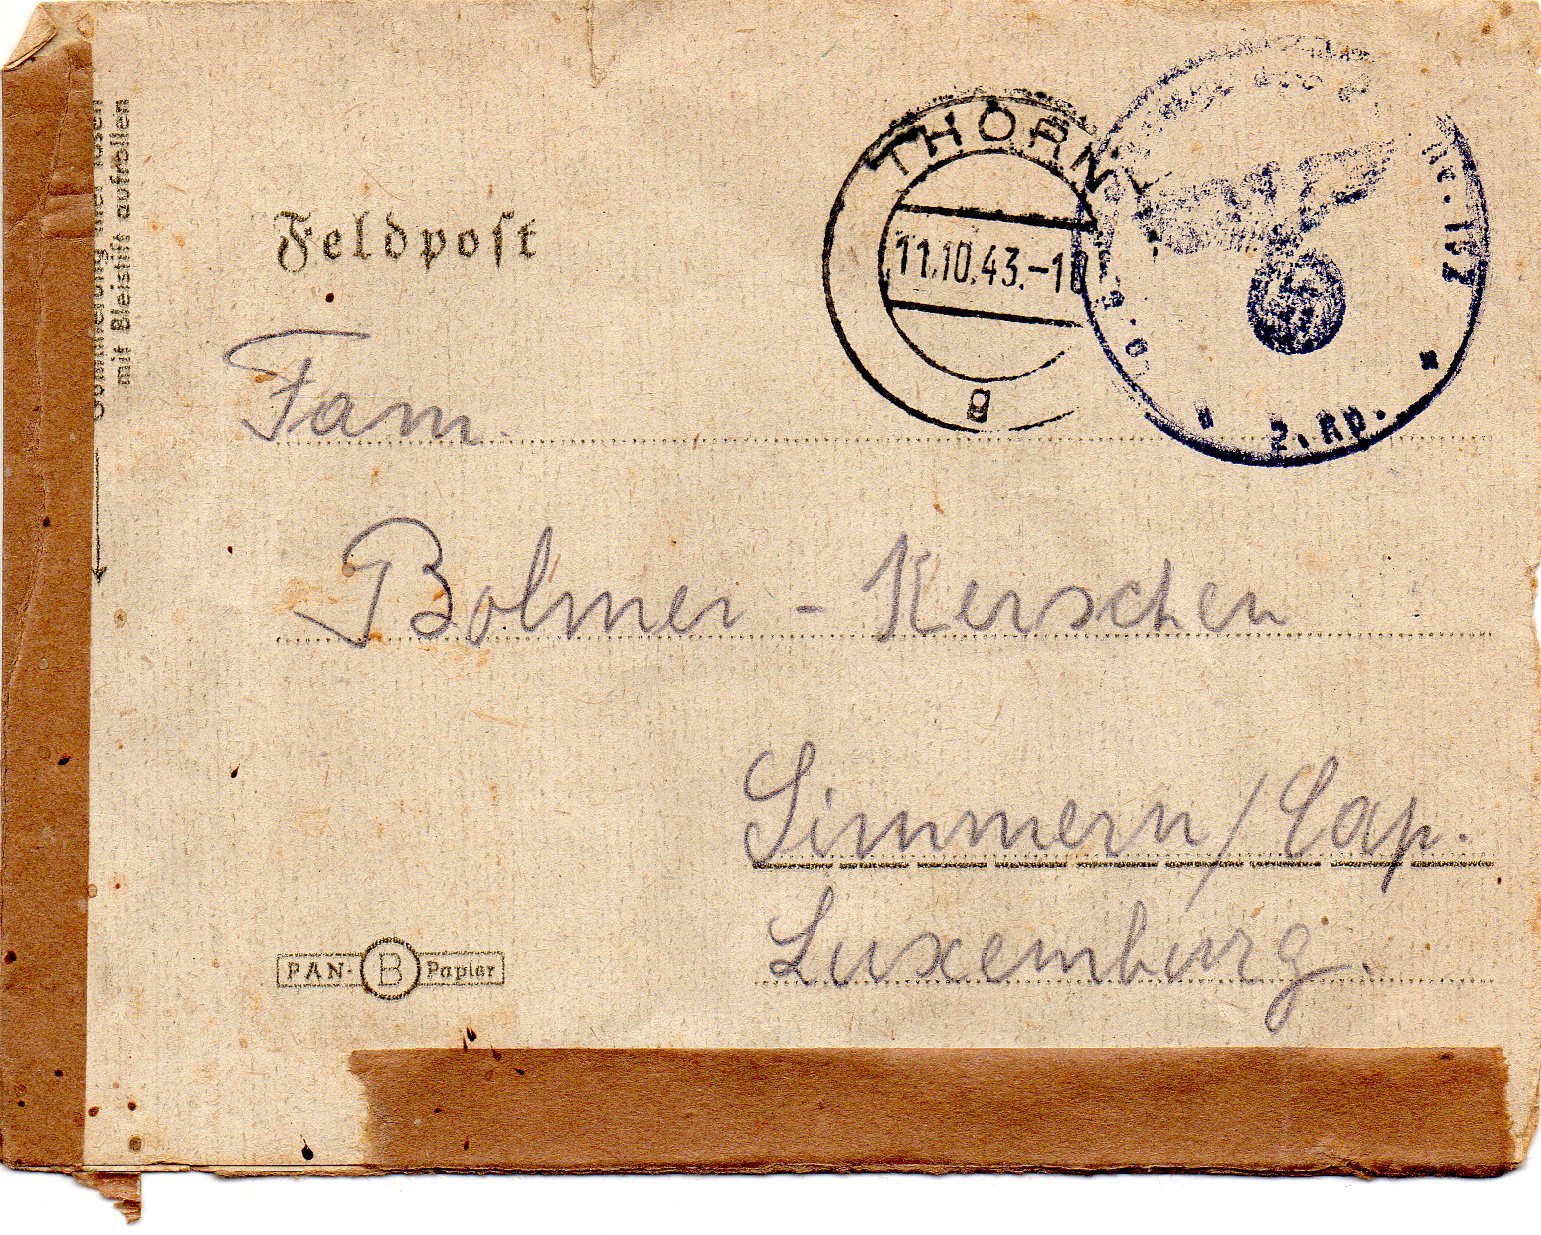 Gummierung hier lösen
mit Bleistift aufrollen
Feldpost
THORN
11.10.43.-18
g
2. Kp.
Fam.
Bolmer - Kerschen
Simmern/Cap.
Luxemburg.
PAN- B Papier